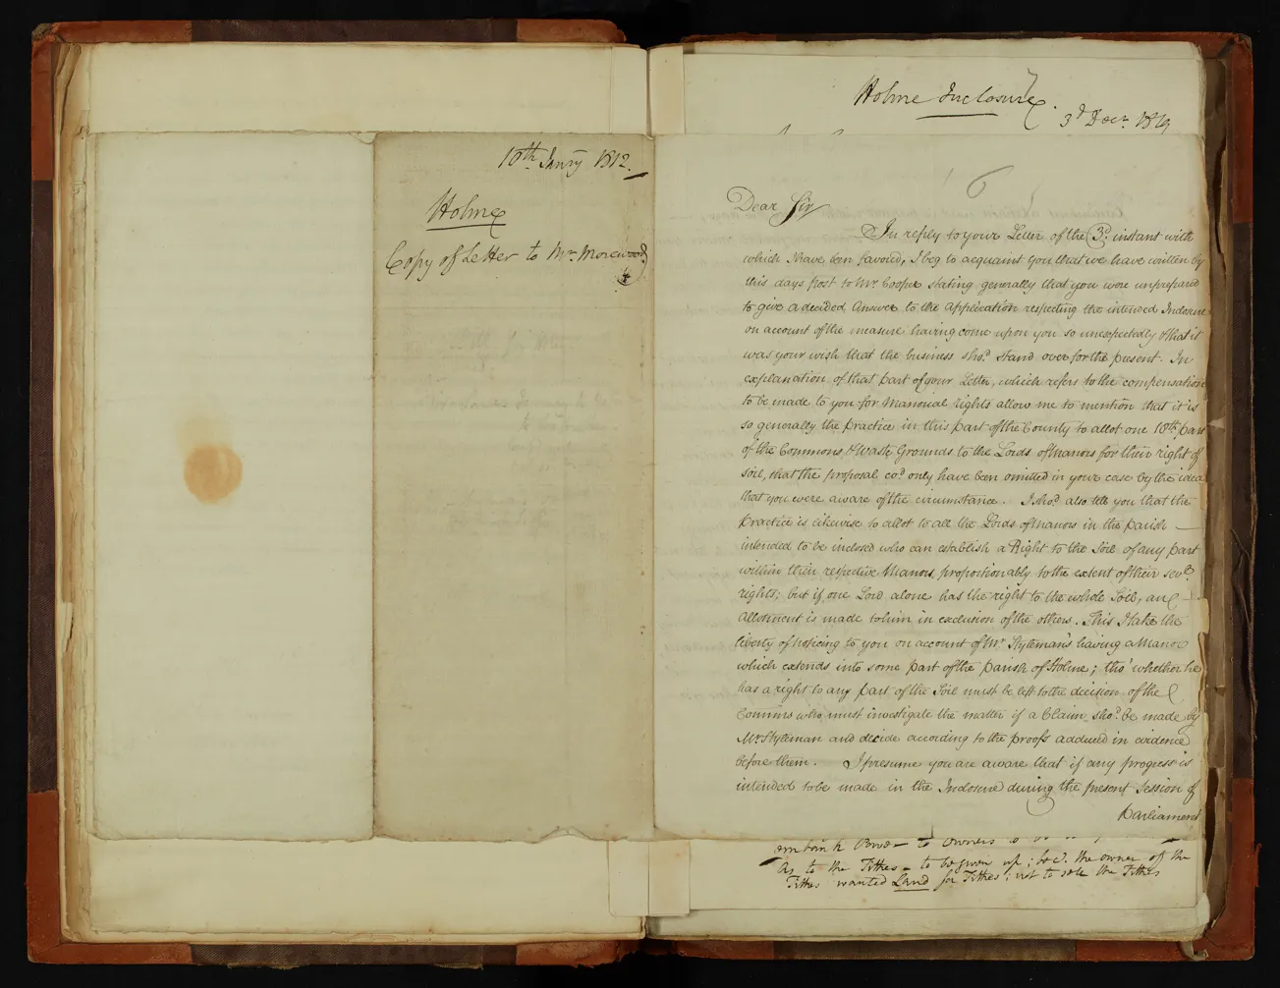 10th Janry 1812.
Holme
Copy of Letter to Mr. Morewood
Holme Inclosure.
3d Decr. 1819
6
Dear Sir
In reply to your Letter of the 3d. instant with
which I have been favored, I beg to acquaint you that we have written by
this days post to Mr Cooper stating generally that you were unprepared
to give a decided Answer to the Application respecting the intended Inclosure
on account of the measure having come upon you so unexpectedly & that it
was your wish that the business shod. stand over for the present. In
explanation of that part of your Letter, which refers to the compensation
to be made to you for Manorial rights allow me to mention that it is
so generally the practice in this part of the County to allot one 18th. part
of the Commons & Waste Grounds to the Lords of Manors for their right of
soil, that the proposal cod. only have been omitted in your case by the idea
that you were aware of the circumstance. I shod. also tell you that the
practice is likewise to allot to all the Lords of Manors in the parish
intended to be inclosed who can establish a Right to the Soil of any part
within their respective Manors, proportionably to the extent of their sevl.
rights; but if one Lord alone has the right to the whole Soil, an
allotment is made to him in exclusion of the others. This I take the
liberty of noticing to you on account of Mr. Styleman's having a Manor
which extends into some part of the parish of Holme; tho' whether he
has a right to any part of the Soil must be left to the decision of the
Commrs who must investigate the matter if a Claim shod. be made by
Mr Styleman and decide according to the proofs adduced in evidence
before them. I presume you are aware that if any progress is
intended to be made in the Inclosure during the present Session of
Parliament
to owners
As to the Tithes - to be given up; the owner of the
Tithes wanted Land for Tithes; not to sell the Tithes